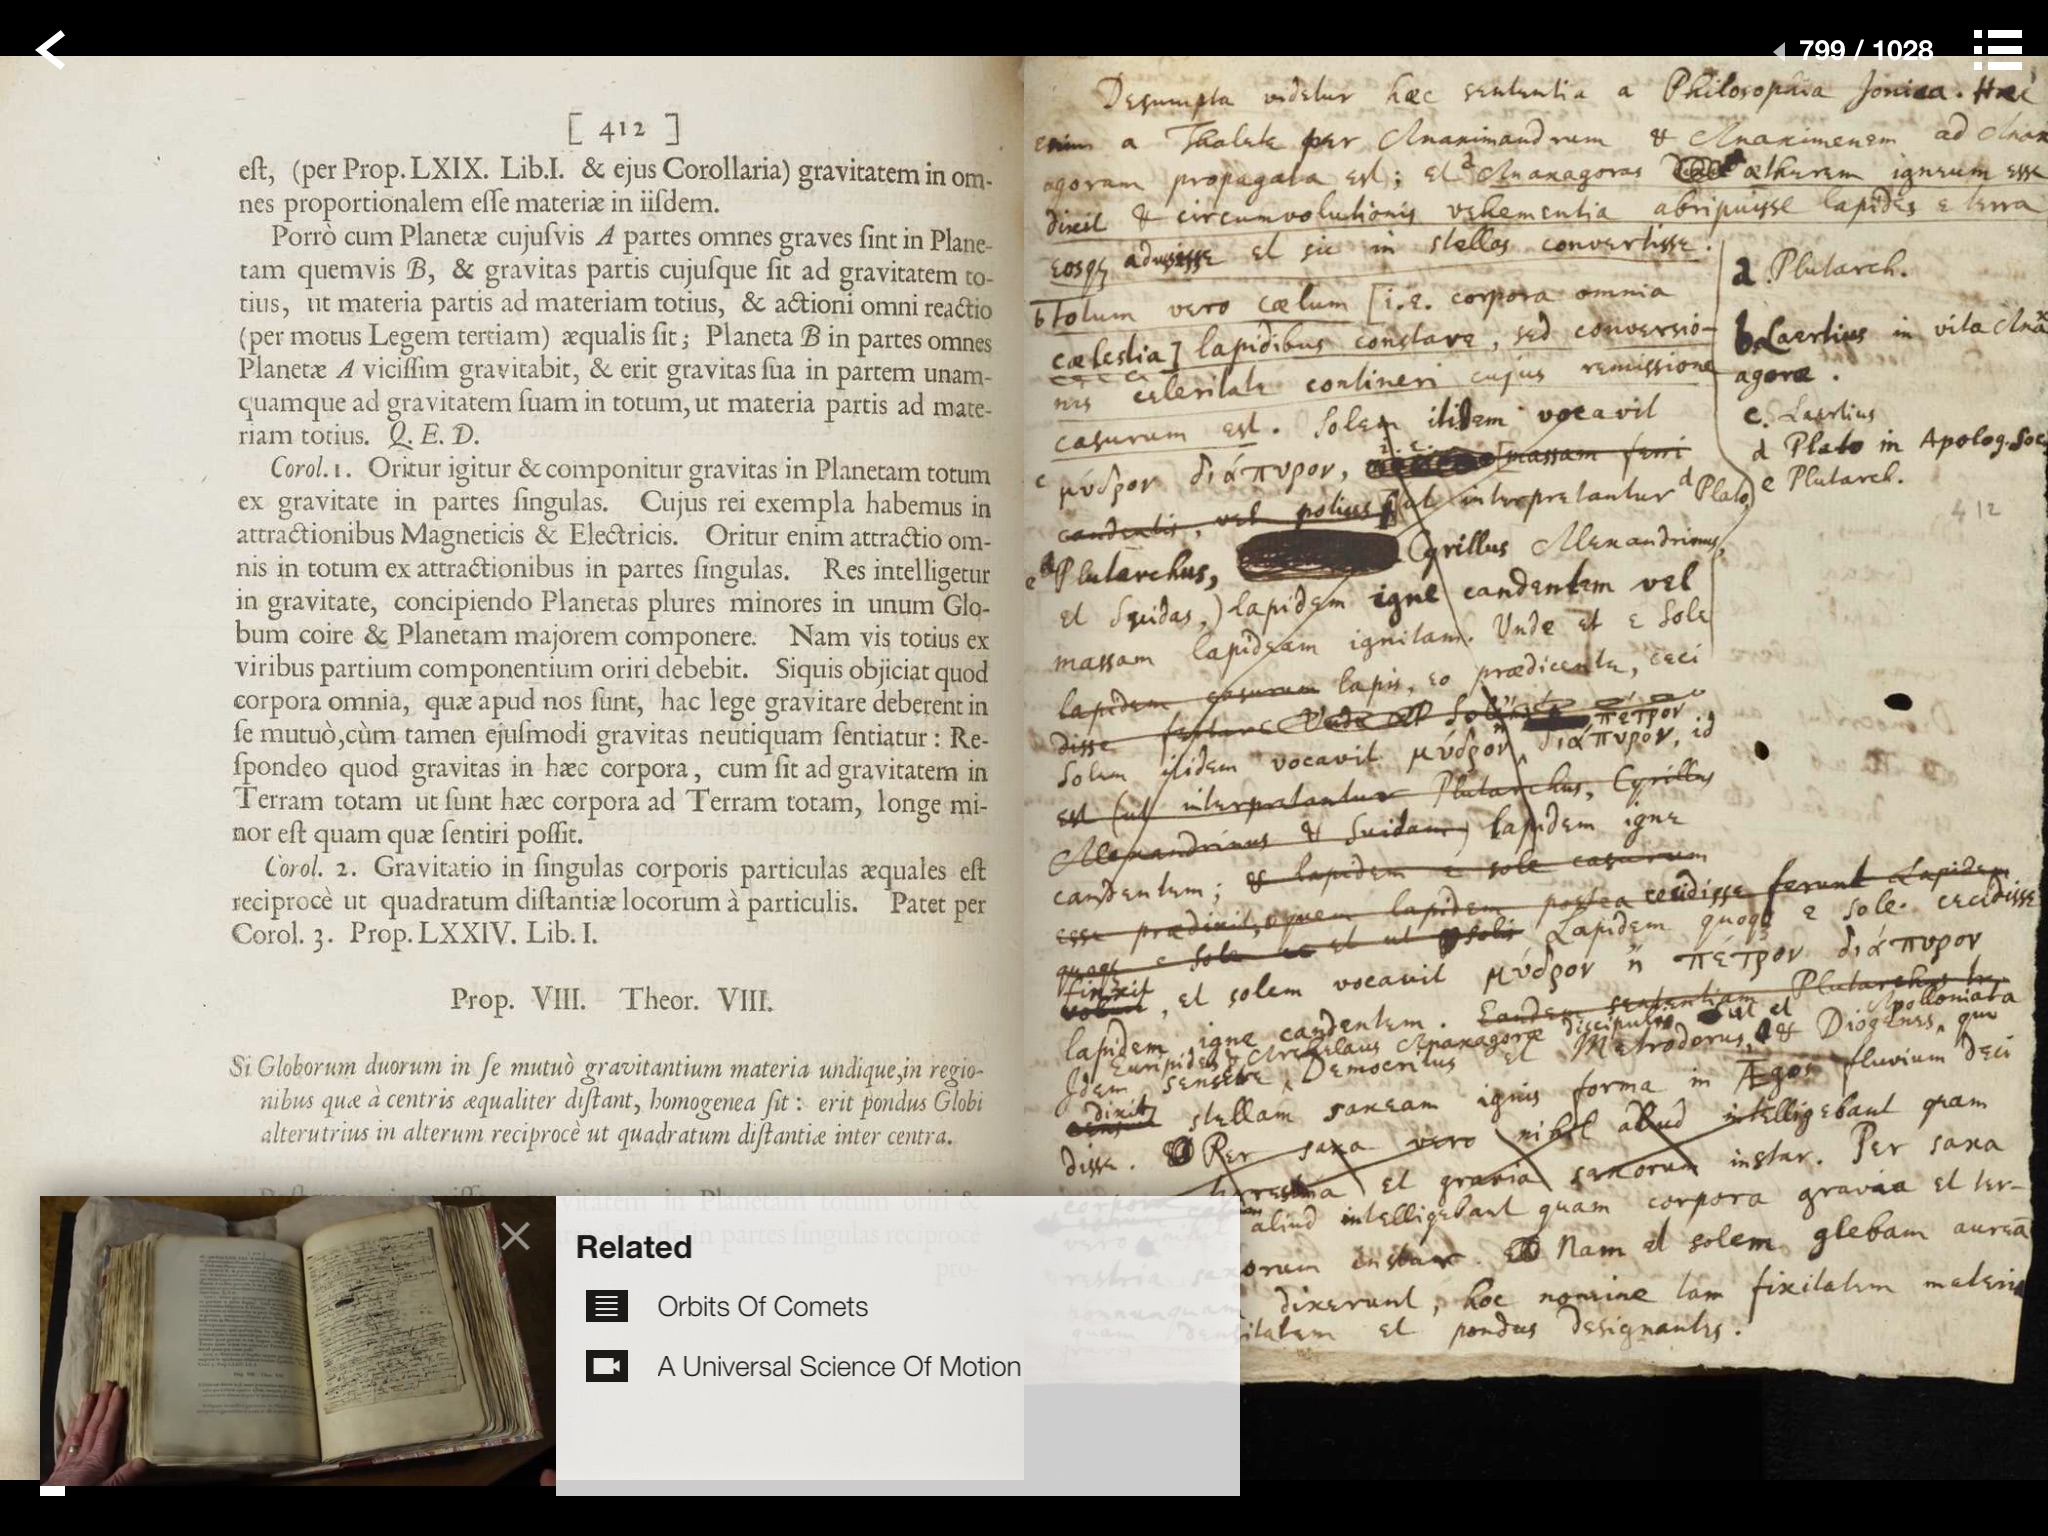 799 / 1028
[ 412 ]
eſt, (per Prop. LXIX. Lib. I. & ejus Corollaria) gravitatem in om-
nes proportionalem eſſe materiæ in iiſdem.
Porrò cum Planetæ cujuſvis A partes omnes graves ſint in Plane-
tam quemvis B, & gravitas partis cujuſque ſit ad gravitatem to-
tius, ut materia partis ad materiam totius, & actioni omni reactio
(per motus Legem tertiam) æqualis ſit; Planeta B in partes omnes
Planetæ A viciſſim gravitabit, & erit gravitas ſua in partem unam-
quamque ad gravitatem ſuam in totum, ut materia partis ad mate-
riam totius. Q. E. D.
Corol. 1. Oritur igitur & componitur gravitas in Planetam totum
ex gravitate in partes ſingulas. Cujus rei exempla habemus in
attractionibus Magneticis & Electricis. Oritur enim attractio om-
nis in totum ex attractionibus in partes ſingulas. Res intelligetur
in gravitate, concipiendo Planetas plures minores in unum Glo-
bum coire & Planetam majorem componere. Nam vis totius ex
viribus partium componentium oriri debebit. Siquis objiciat quod
corpora omnia, quæ apud nos ſunt, hac lege gravitare deberent in
ſe mutuò, cùm tamen ejuſmodi gravitas neutiquam ſentiatur: Re-
ſpondeo quod gravitas in hæc corpora, cum ſit ad gravitatem in
Terram totam ut ſunt hæc corpora ad Terram totam, longe mi-
nor eſt quam quæ ſentiri poſſit.
Corol. 2. Gravitatio in ſingulas corporis particulas æquales eſt
reciprocè ut quadratum diſtantiæ locorum à particulis. Patet per
Corol. 3. Prop. LXXIV. Lib. I.
Prop. VIII. Theor. VIII.
Si Globorum duorum in ſe mutuò gravitantium materia undique, in regio-
nibus quæ à centris æqualiter diſtant, homogenea ſit: erit pondus Globi
alterutrius in alterum reciprocè ut quadratum diſtantiæ inter centra.
Desumpta videtur hæc sententia a Philosophia Jonica. Hæc
enim a Thalete per Anaximandrum & Anaximenem ad Anax
agoram propagata est; et a Anaxagoras ætherem igneum esse
dixit & circumvolutionis vehementia abripuisse lapides e terra
eosq; adussisse et sic in stellas convertisse.
b Totum vero cælum [i.e. corpora omnia
cælestia] lapidibus constare, sed conversio-
nis celeritate contineri cujus remissione
casurum est. Solem itidem vocavit
c μύδρον διάπυρον, i.e. [massam ferri
candentis, vel potius (ut interpretantur d Plato,
e Plutarchus, Cyrillus Alexandrinus,
et Suidas,) lapidem igne candentem vel
massam lapideam ignitam. Unde et e Sole
lapidem casurum lapis, eo prædicente, ceci
disse
πέτρον
Solem itidem vocavit μύδρον ἢ διάπυρον, id
est (ut interpretantur Plutarchus, Cyrillus
Alexandrinus & Suidam) lapidem igne
candentem; & lapidem e sole casurum
esse prædixit, quem lapidem postea cecidisse ferunt Lapidem
quoq; e Sole et ut Solis Lapidem quoq; e Sole cecidisse
finxit, et solem vocavit μύδρον ἢ πέτρον διάπυρον
lapidem igne candentem. Eandem sententiam Plutarchus
Euripides & Archelaus Anaxagoræ discipuli Apolloniata
Idem sensere, Democritus et Metrodorus, & Diogenes qui
dixit stellam saxeam ignis forma in Ægos fluvium deci
disse. Per saxa vero nihil aliud intelligebant quam
et gravia saxorum instar. Per saxa
aliud intelligebant quam corpora gravia et ter-
orum instar. Nam et solem glebam aurea
dixerunt, hoc nomine tam fixitatem materiæ
et pondus designantes.
a Plutarch.
b. Laertius in vita Anax
agoræ.
c. Laertius
d Plato in Apolog. Soc
e Plutarch.
412
Related
Orbits Of Comets
A Universal Science Of Motion